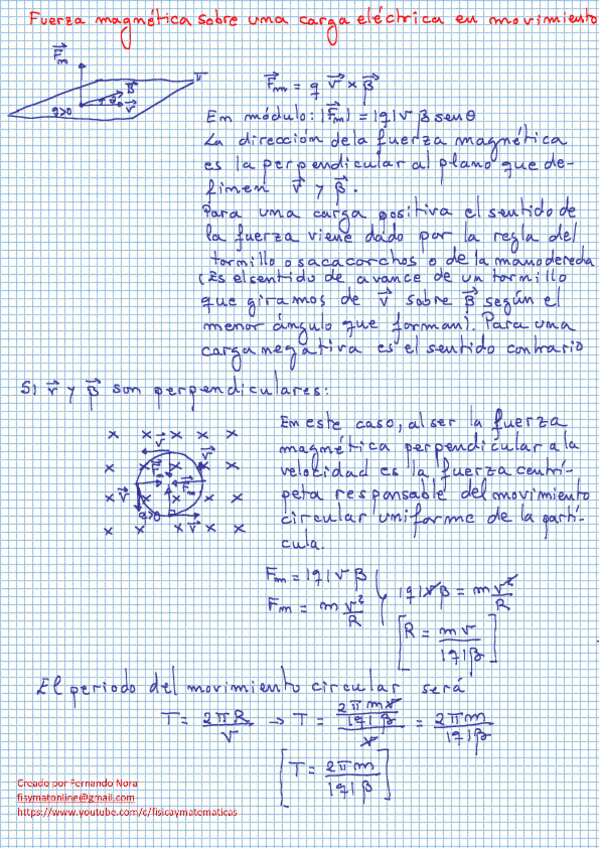 Fuerza magnética sobre una carga eléctrica en movimiento
F⃗m
q>0 θ B⃗ v⃗ π
F⃗m = q v⃗ × B⃗
En módulo: |F⃗m| = |q| v B sen θ
La dirección de la fuerza magnética
es la perpendicular al plano que de-
finen v⃗ y B⃗.
Para una carga positiva el sentido de
la fuerza viene dado por la regla del
tornillo o sacacorchos o de la mano derecha
(Es el sentido de avance de un tornillo
que giramos de v⃗ sobre B⃗ según el
menor ángulo que forman). Para una
carga negativa es el sentido contrario
Si v⃗ y B⃗ son perpendiculares:
x x x x x
x x v⃗ F⃗m v⃗ x
x v⃗ F⃗m x x
x x q>0 x v⃗ x
En este caso, al ser la fuerza
magnética perpendicular a la
velocidad es la fuerza centrí-
peta responsable del movimiento
circular uniforme de la partí-
cula.
Fm = |q| v B
Fm = m v²/R
|q| v B = m v²/R
[R = mv/|q|B]
El periodo del movimiento circular será
T = 2πR/v → T = (2πmv/|q|B)/v = 2πm/|q|B
[T = 2πm/|q|B]
Creado por Fernando Nora
fisymatonline@gmail.com
https://www.youtube.com/c/fisicaymatematicas